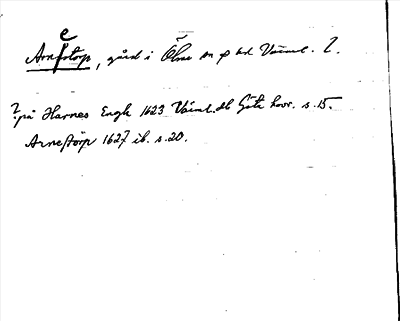 e
Arnfstorp, gård i Ölme sn o hd Värml. 2.
? på Harnes Engh 1623 Värml. db Göta hovr. s. 15.
Arnestörp 1627 ib. s. 20.